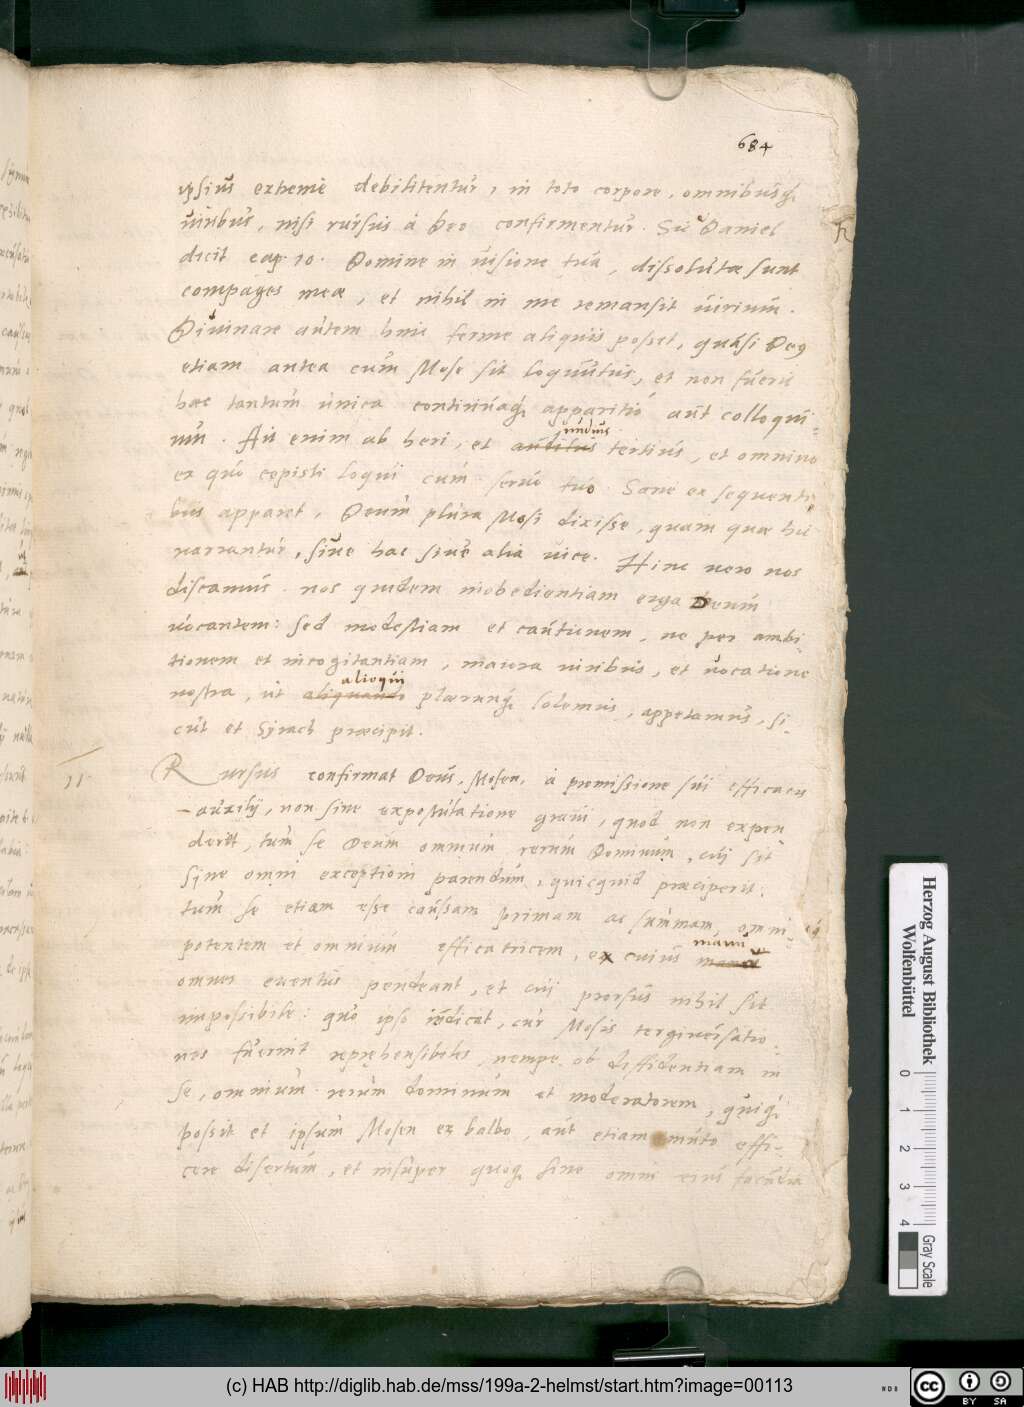 684
ipsius extreme debilitentur, in toto corpore, omnibusq́
uiribus, nisi rursus à Deo confirmentur. Sic Daniel
dicit cap. 10. Domine in uisione tua, dissolutæ sunt
compages meæ, et nihil in me remansit uirium.
Diuinare autem hinc ferme aliquis posset, quasi Deus
etiam antea cum Mose sit loquutus, et non fuerit
hæc tantum unica continuaq́ apparitio aut colloqui-
um. Ait enim ab heri, et nudius tertius, et omnino
ex quo cepisti loqui cum seruo tuo. Sane ex sequenti-
bus apparet, Deum plura Mosi dixisse, quam quæ hic
narrantur, siue hac siue alia uice. Hinc uero nos
discamus. nos quidem inobedientiam erga Deum
uocantem: sed modestiam et cautionem, ne per ambi-
tionem et incogitantiam, maiora uiribus, et uocatione
nostra, ut alioqui plærunq́ solemus, appetamus, si-
cut et Syrach præcipit.
11
Rursus confirmat Deus, Mosen, à promissione sui efficacis
auxilij, non sine expostulatione graui, quod non expen
derit, tum se Deum omnium rerum Dominum, cui sit
sine omni exceptioni parendum, quicquid præciperit.
tum se etiam esse caussam primam ac summam, omni-
potentem et omnium efficatricem, ex cuius manu
omnes euentus pendeant, et cui prorsus nihil sit
impossibile: quo ipso indicat, cur Mosis tergiuersatio-
nes fuerint repręhensibiles, nempe ob diffidentiam in
se, omnium rerum dominum et moderatorem, quiq́
possit et ipsum Mosen ex balbo, aut etiam muto effi-
cere disertum, et insuper quoq́ sine omni eius facundia
Herzog August Bibliothek
Wolfenbüttel
0 1 2 3 4
Gray Scale
(c) HAB http://diglib.hab.de/mss/199a-2-helmst/start.htm?image=00113
cc BY SA